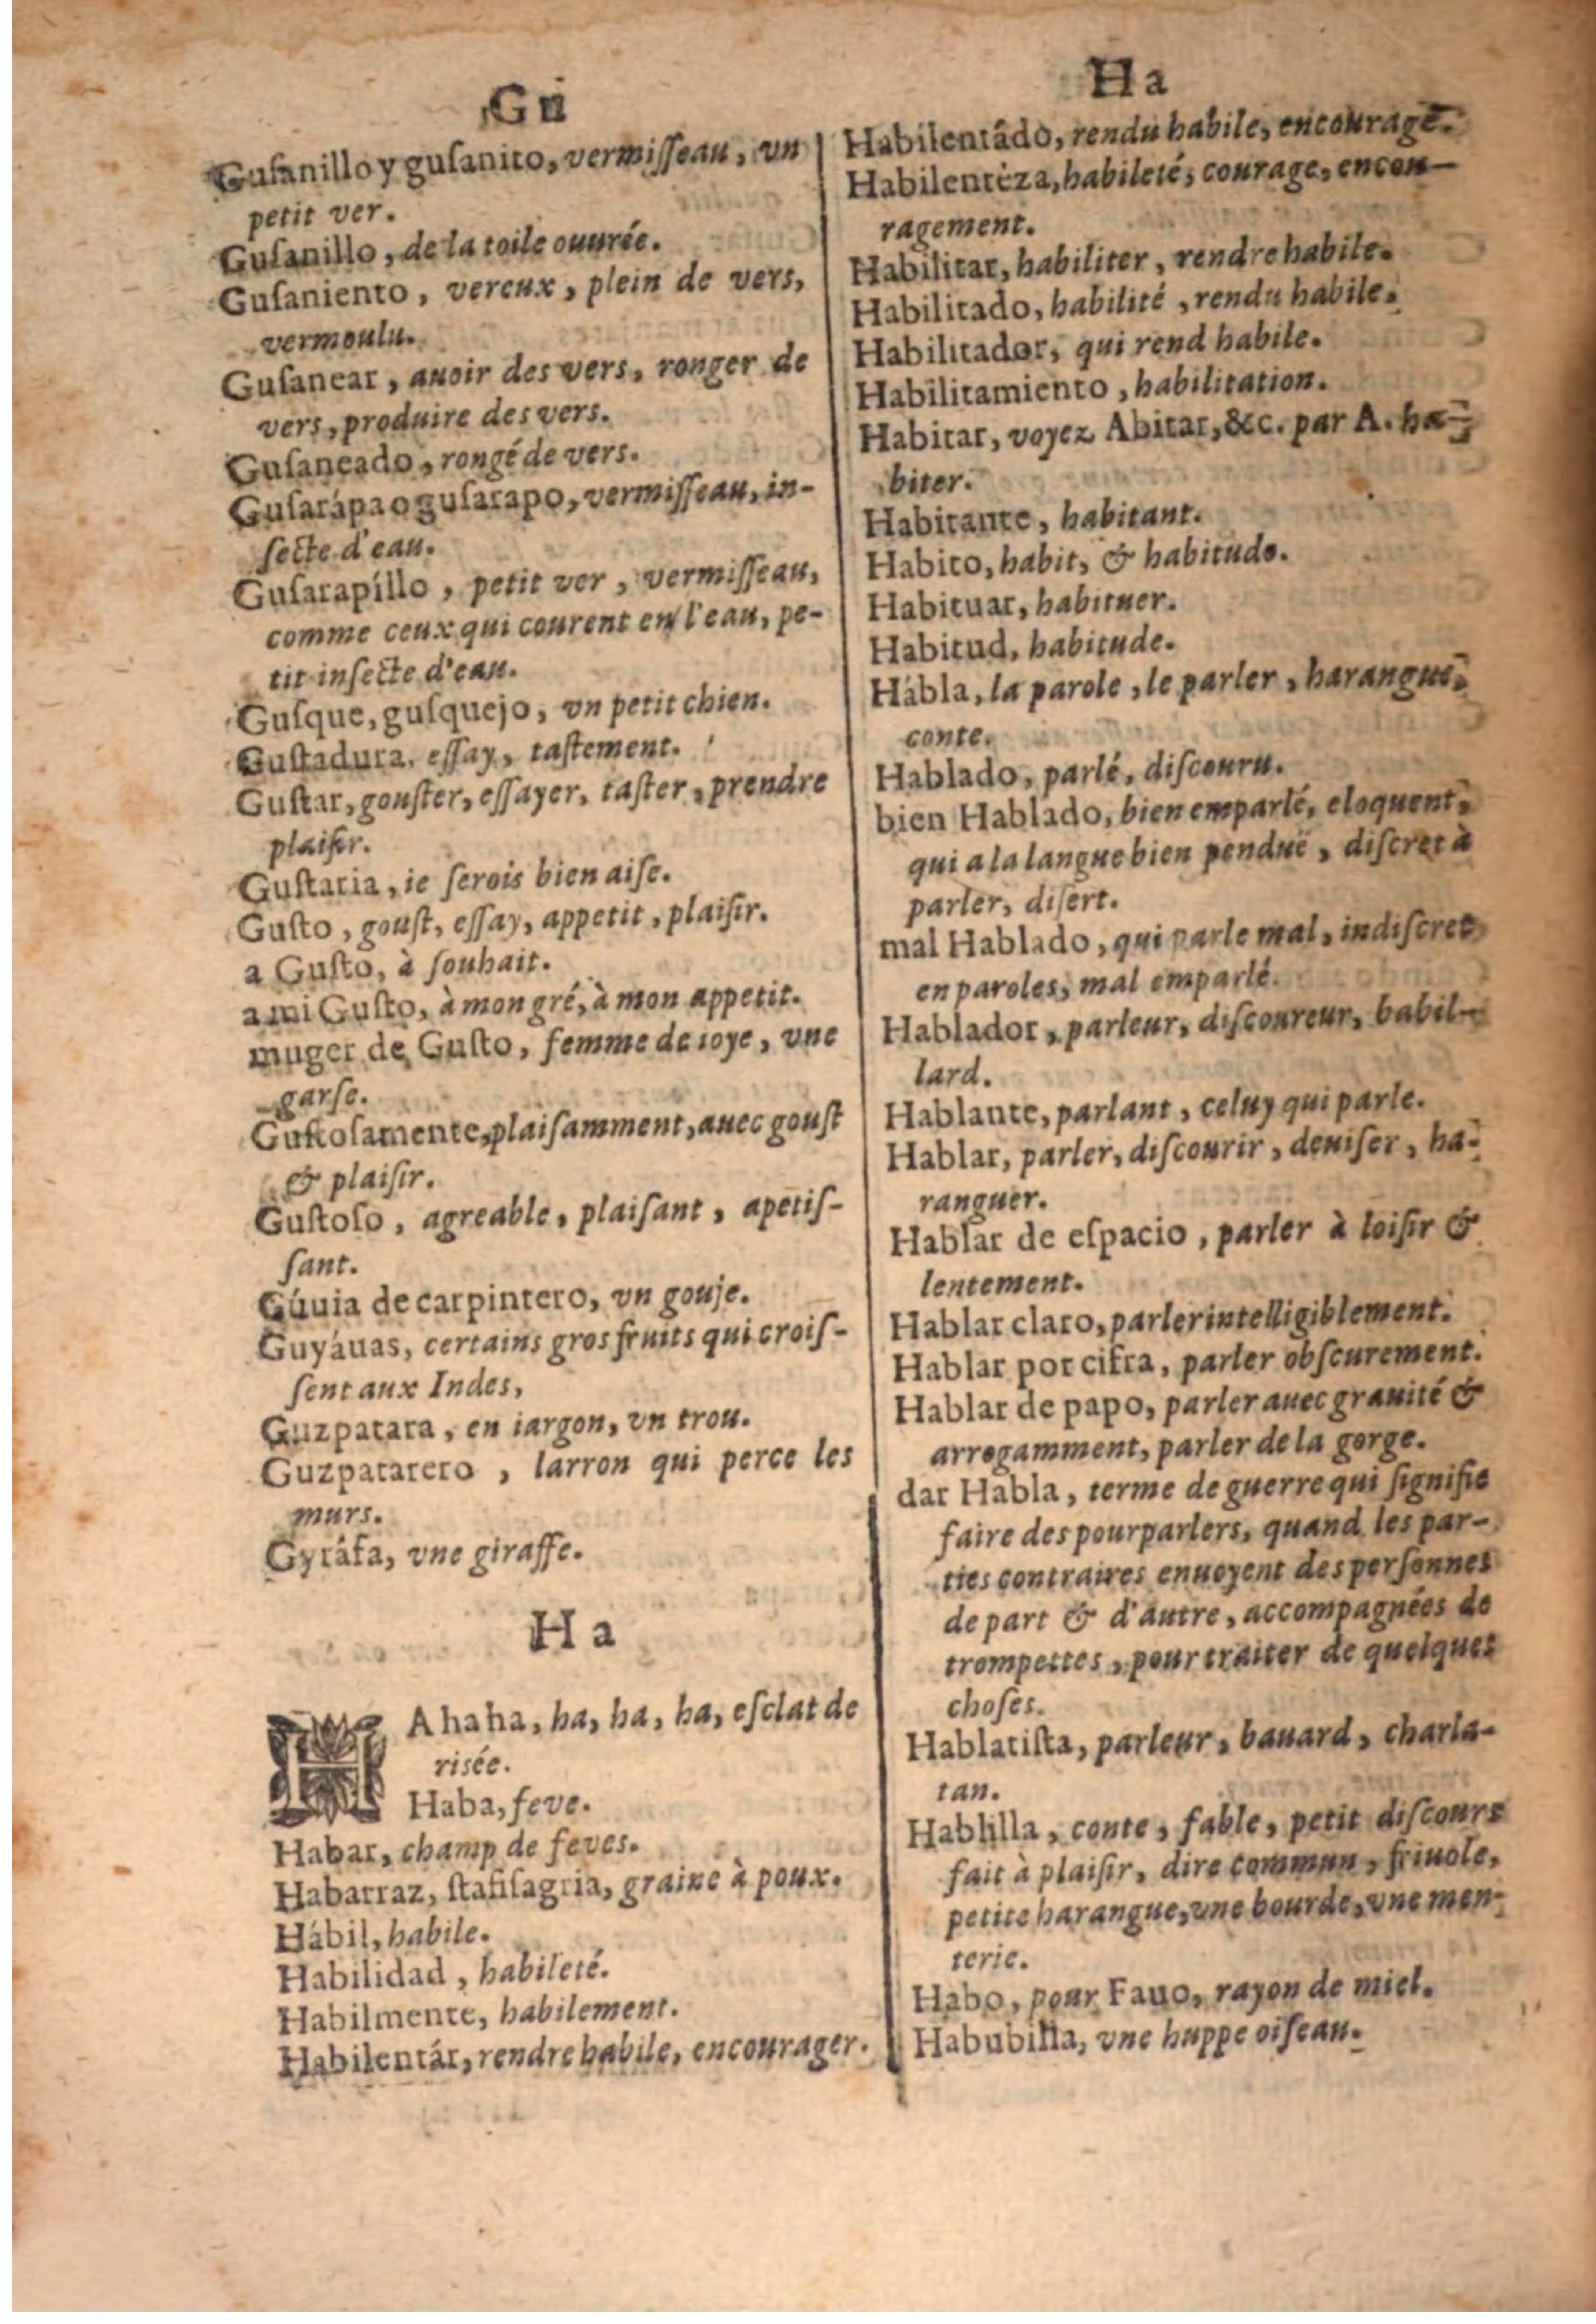 Gu
Guſanillo y guſanito, vermiſſeau, vn
petit ver.
Guſanillo, de la toile ouurée.
Guſaniento, vereux, plein de vers,
vermoulu.
Guſanear, auoir des vers, ronger de
vers, produire des vers.
Guſaneado, rongé de vers.
Guſarápa o guſarapo, vermiſſeau, in-
ſecte d'eau.
Guſarapíllo, petit ver, vermiſſeau,
comme ceux qui courent en l'eau, pe-
tit inſecte d'eau.
Guſque, guſquejo, vn petit chien.
Guſtadura, eſſay, taſtement.
Guſtar, gouſter, eſſayer, taſter, prendre
plaiſir.
Guſtaria, ie ſerois bien aiſe.
Guſto, gouſt, eſſay, appetit, plaiſir.
a Guſto, à ſouhait.
a mi Guſto, à mon gré, à mon appetit.
muger de Guſto, femme de ioye, vne
garſe.
Guſtoſamente, plaiſamment, auec gouſt
& plaiſir.
Guſtoſo, agreable, plaiſant, apetiſ-
ſant.
Gúuia de carpintero, vn gouje.
Guyáuas, certains gros fruits qui croiſ-
ſent aux Indes,
Guzpatara, en iargon, vn trou.
Guzpatarero, larron qui perce les
murs.
Gyráfa, vne giraffe.
Ha
HA ha ha, ha, ha, ha, eſclat de
risée.
Haba, feve.
Habar, champ de feves.
Habarraz, ſtafiſagria, graine à poux.
Hábil, habile.
Habilidad, habileté.
Habilmente, habilement.
Habilentár, rendre habile, encourager.
Ha
Habilentádo, rendu habile, encouragé.
Habilentéza, habileté, courage, encou-
ragement.
Habilitar, habiliter, rendre habile.
Habilitado, habilité, rendu habile.
Habilitador, qui rend habile.
Habilitamiento, habilitation.
Habitar, voyez Abitar, &c. par A. ha-
biter.
Habitante, habitant.
Habito, habit, & habitude.
Habituar, habituer.
Habitud, habitude.
Hábla, la parole, le parler, harangue,
conte.
Hablado, parlé, diſcouru.
bien Hablado, bien emparlé, eloquent,
qui a la langue bien penduë, diſcret à
parler, diſert.
mal Hablado, qui parle mal, indiſcret
en paroles, mal emparlé.
Hablador, parleur, diſcoureur, babil-
lard.
Hablante, parlant, celuy qui parle.
Hablar, parler, diſcourir, deuiſer, ha-
ranguer.
Hablar de eſpacio, parler à loiſir &
lentement.
Hablar claro, parler intelligiblement.
Hablar por cifra, parler obſcurement.
Hablar de papo, parler auec grauité &
arrogamment, parler de la gorge.
dar Habla, terme de guerre qui ſignifie
faire des pourparlers, quand les par-
ties contraires enuoyent des perſonnes
de part & d'autre, accompagnées de
trompettes, pour traiter de quelques
choſes.
Hablatiſta, parleur, bauard, charla-
tan.
Hablilla, conte, fable, petit diſcours
fait à plaiſir, dire commun, friuole,
petite harangue, vne bourde, vne men-
terie.
Habo, pour Fauo, rayon de miel.
Habubilla, vne huppe oiſeau.